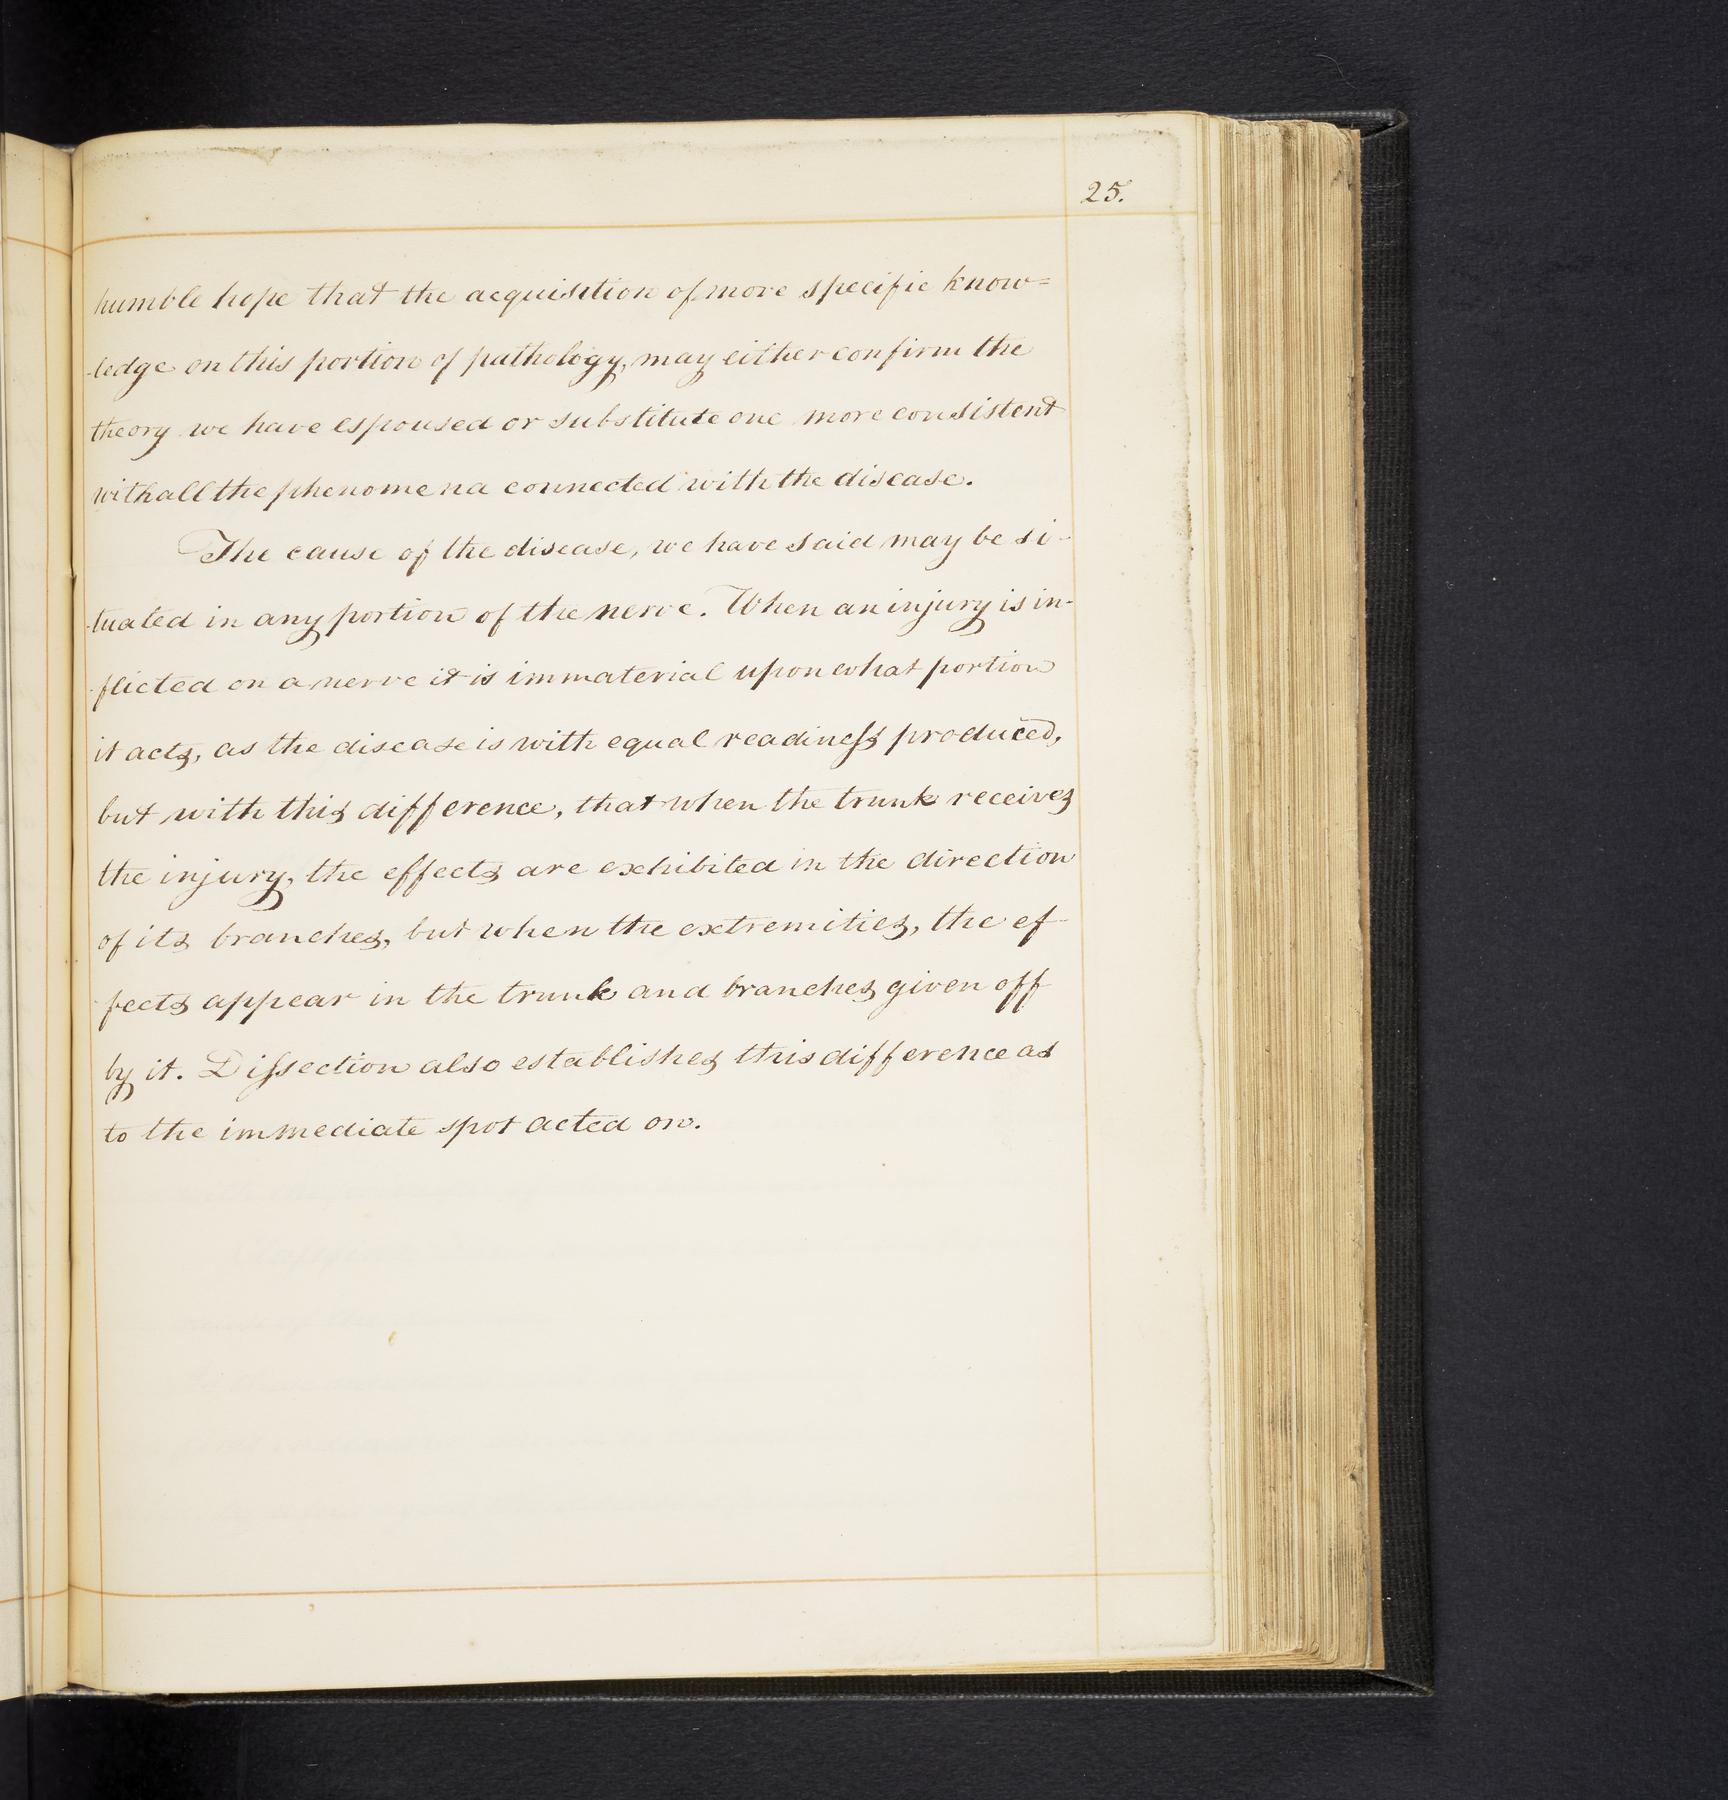 25.
humble hope that the acquisition of more specific know=
-ledge on this portion of pathology, may either confirm the
theory we have espoused or substitute one more consistent
with all the phenomena connected with the disease.
The cause of the disease, we have said may be si-
-tuated in any portion of the nerve. When an injury is in-
-flicted on a nerve it is immaterial upon what portion
it acts, as the disease is with equal readiness produced,
but with this difference, that when the trunk receives
the injury, the effects are exhibited in the direction
of its branches, but when the extremities, the ef-
-fects appear in the trunk and branches given off
by it. Dissection also establishes this difference as
to the immediate spot acted on.